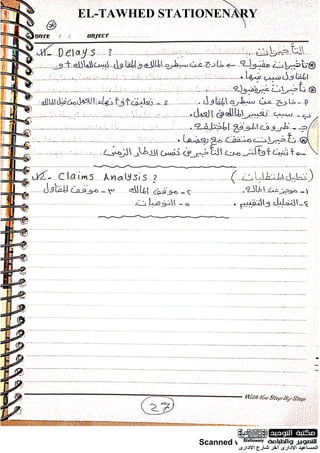 EL-TAWHED STATIONENARY
DATE / / OBJECT
11- Delays ? التأخيرات
تأخيرات مقبولة ← خارج عن سيطرة المالك والمقاول ليس المالك أو
المقاول سبب فيها.
تأخيرات غير مقبولة
٢- خارج عن سيطرة المقاول. ٤- تعليق أو إنهاء العمل من قبل المالك
ب- سبب تغيير المالك في العمل.
ج- ظروف الموقع المختلفة.
تأخيرات متفق مع بعضها.
← اثنين أو أكثر من التأخير في نفس الإطار الزمني
12- Claims Analysis ? (تحليل المتطلبات)
١- موجز عن الحالة. ٢- موقف المالك ٣- موقف المقاول
٤- التحليل والتقييم. ٥- التوصيات
With You Step By Step
27
مكتبة التوحيد
Stationery للتصوير والطباعة
Scanned
المساعيد الإداري آخر شارع الإداري